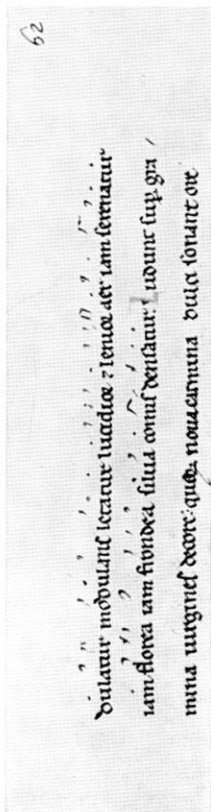 62
dulatur modulans letatur lucidior ⁊ lenior aer iam serenatur
iam florea iam frondea silua comis densatur. Ludunt sup gra
mina uirgines decore: noua carmina dulci sonant ore